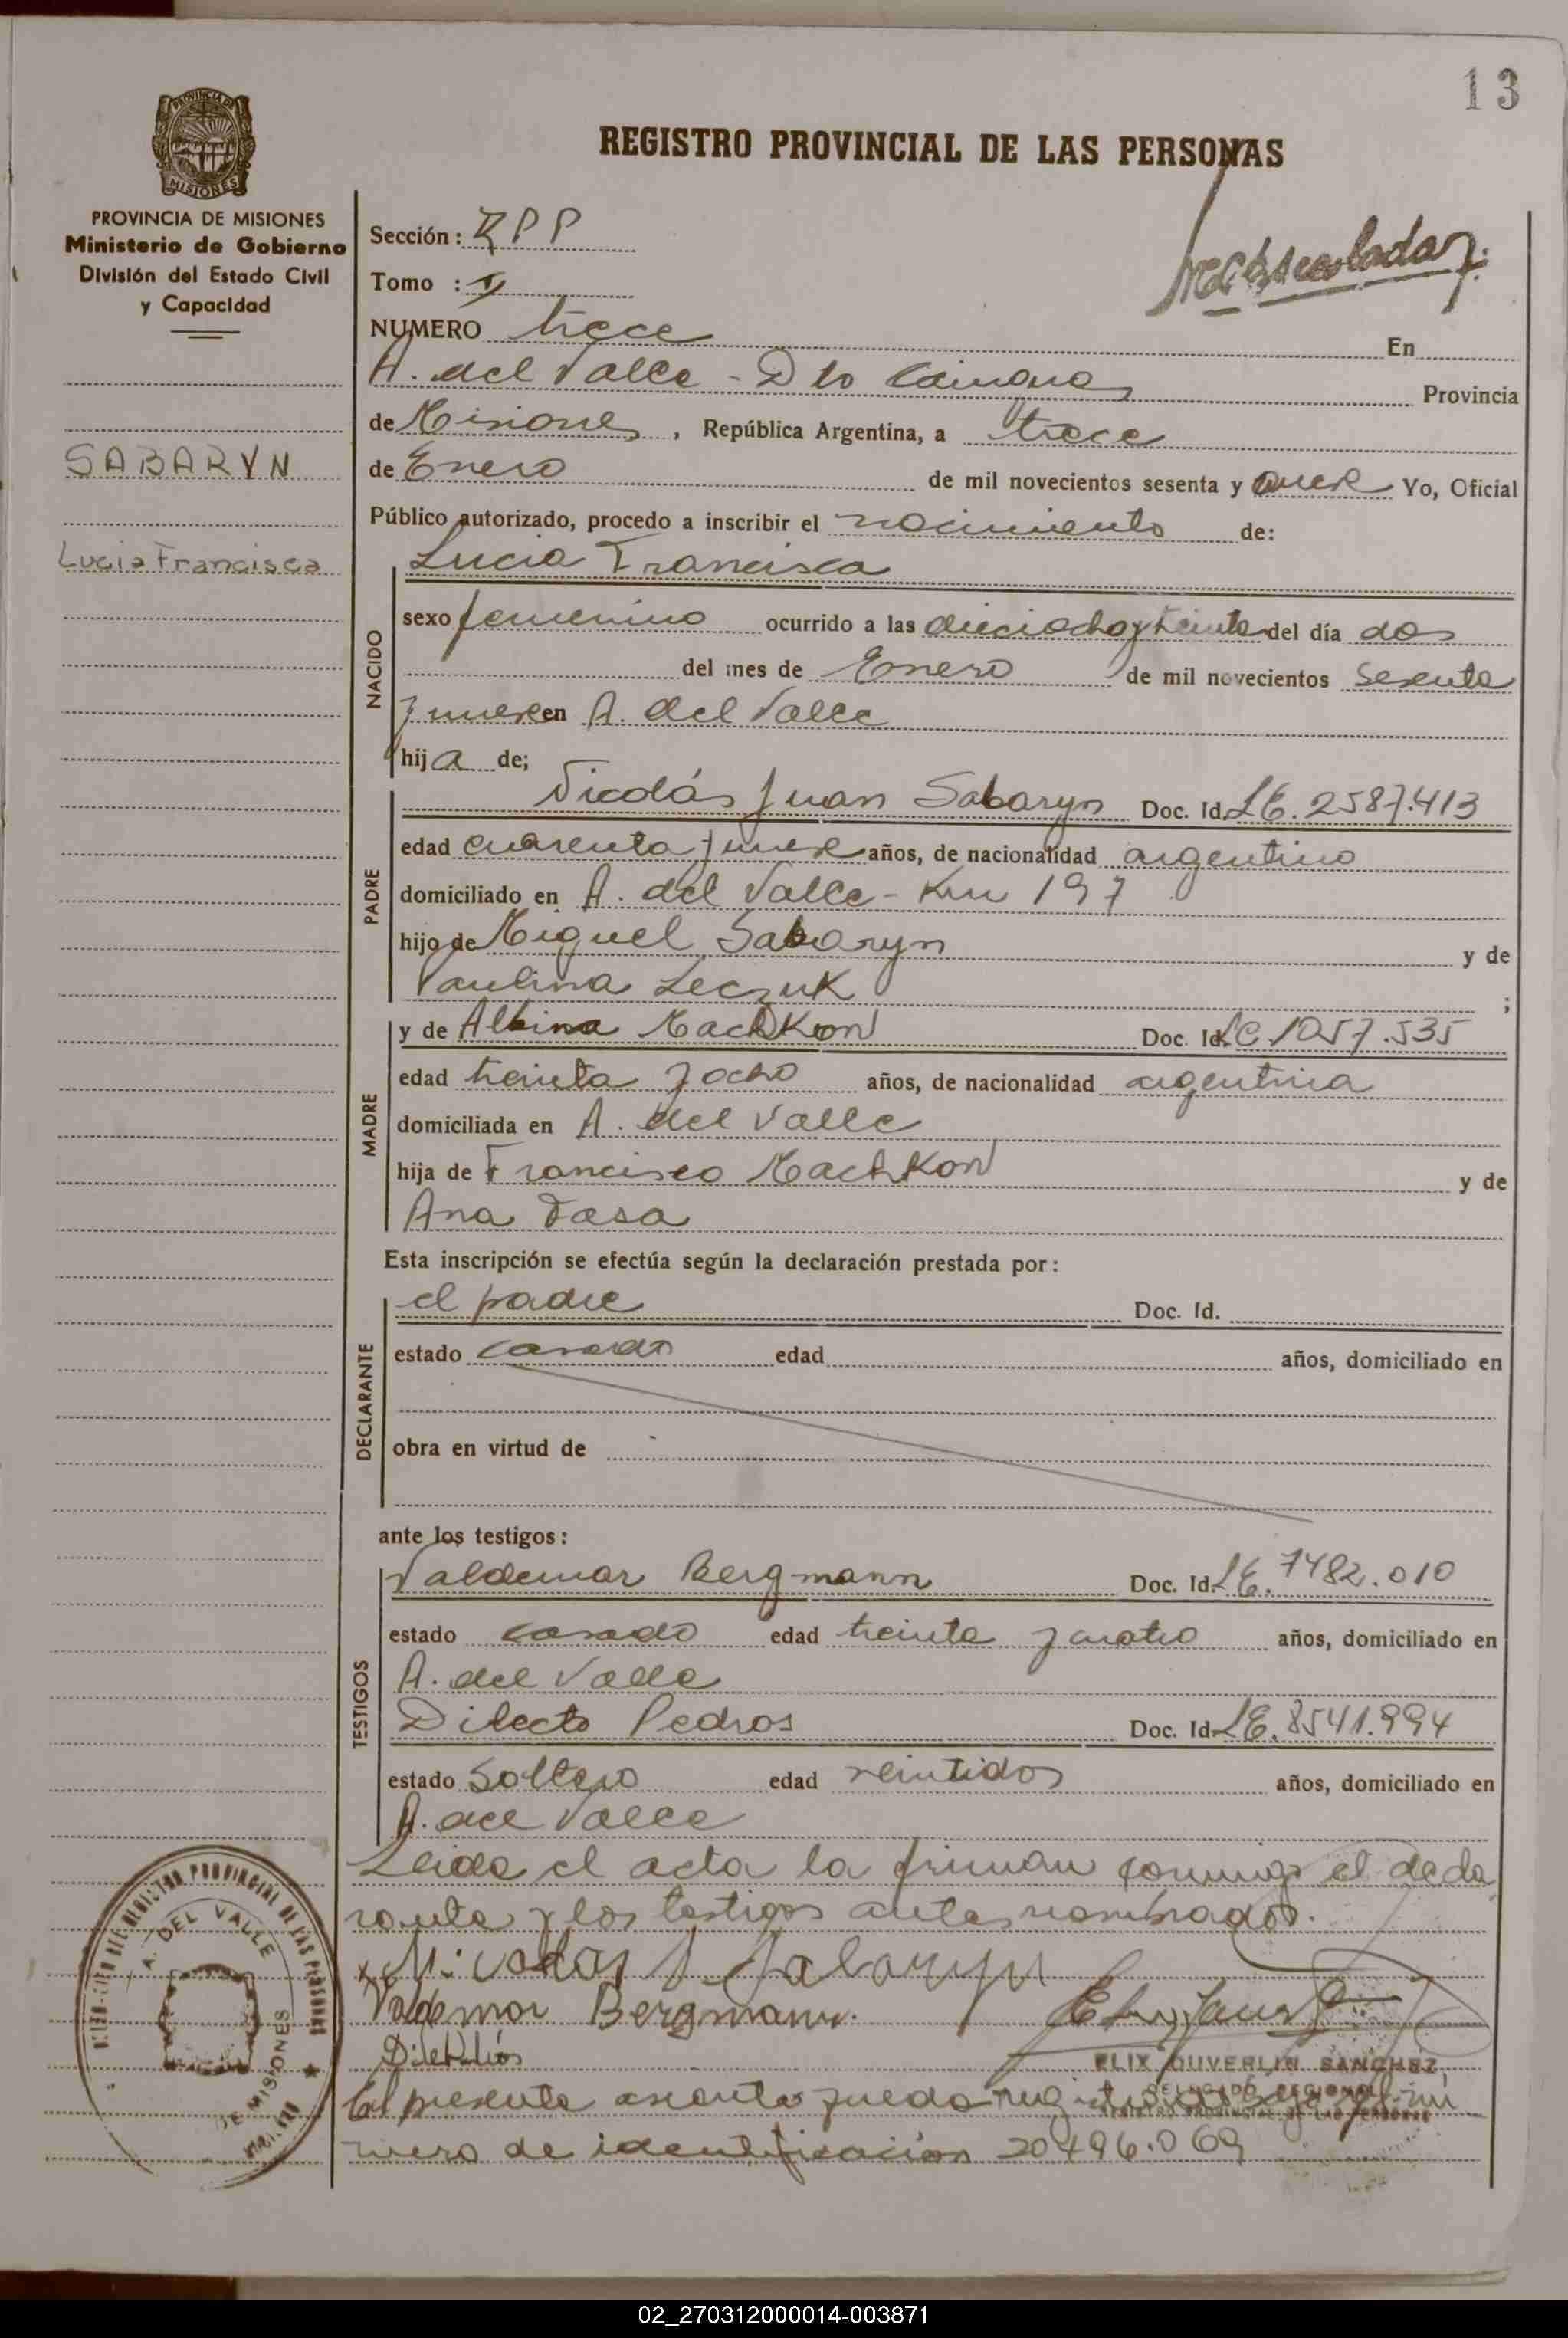 13
REGISTRO PROVINCIAL DE LAS PERSONAS
PROVINCIA DE MISIONES
Ministerio de Gobierno
División del Estado Civil
y Capacidad
SABARYN
Lucia Francisca
Sección: RPP
Tomo : I
NUMERO trece En
A. del Valle - Dto Cainguas Provincia
de Misiones, República Argentina, a trece
de Enero de mil novecientos sesenta y nueve Yo, Oficial
Público autorizado, procedo a inscribir el nacimiento de:
NACIDO
Lucia Francisca
sexo femenino ocurrido a las dieciocho y treinta del día dos
del mes de Enero de mil novecientos sesenta
y nueve en A. del Valle
hija de;
PADRE
Nicolás Juan Sabaryn Doc. Id. LE. 2587.413
edad cuarenta y nueve años, de nacionalidad argentino
domiciliado en A. del Valle - Km 197
hijo de Miguel Sabaryn y de
Paulina Leczuk ;
MADRE
y de Albina Machkon Doc. Id. LC. 1057.535
edad treinta y ocho años, de nacionalidad argentina
domiciliada en A. del Valle
hija de Francisco Machkon y de
Ana
Esta inscripción se efectúa según la declaración prestada por:
DECLARANTE
el padre Doc. Id.
estado casado edad años, domiciliado en
obra en virtud de
ante los testigos:
TESTIGOS
Valdemar Bergmann Doc. Id. LE. 7482.010
estado casado edad treinta y cuatro años, domiciliado en
A. del Valle
Dilecto Pedros Doc. Id. LE. 8541.994
estado soltero edad veintidos años, domiciliado en
A. del Valle
Leida el acta la firman conmigo el decla
rante y los testigos antes nombrados.
Nicolas J Sabaryn
Valdemar Bergmann.
A. DEL VALLE
MISIONES
FELIX DUVERLIN SANCHEZ
DELEGADO REGIONAL
REGISTRO PROVINCIAL DE LAS PERSONAS
El presente asiento queda
mero de identificacion 20496.069
02_270312000014-003871